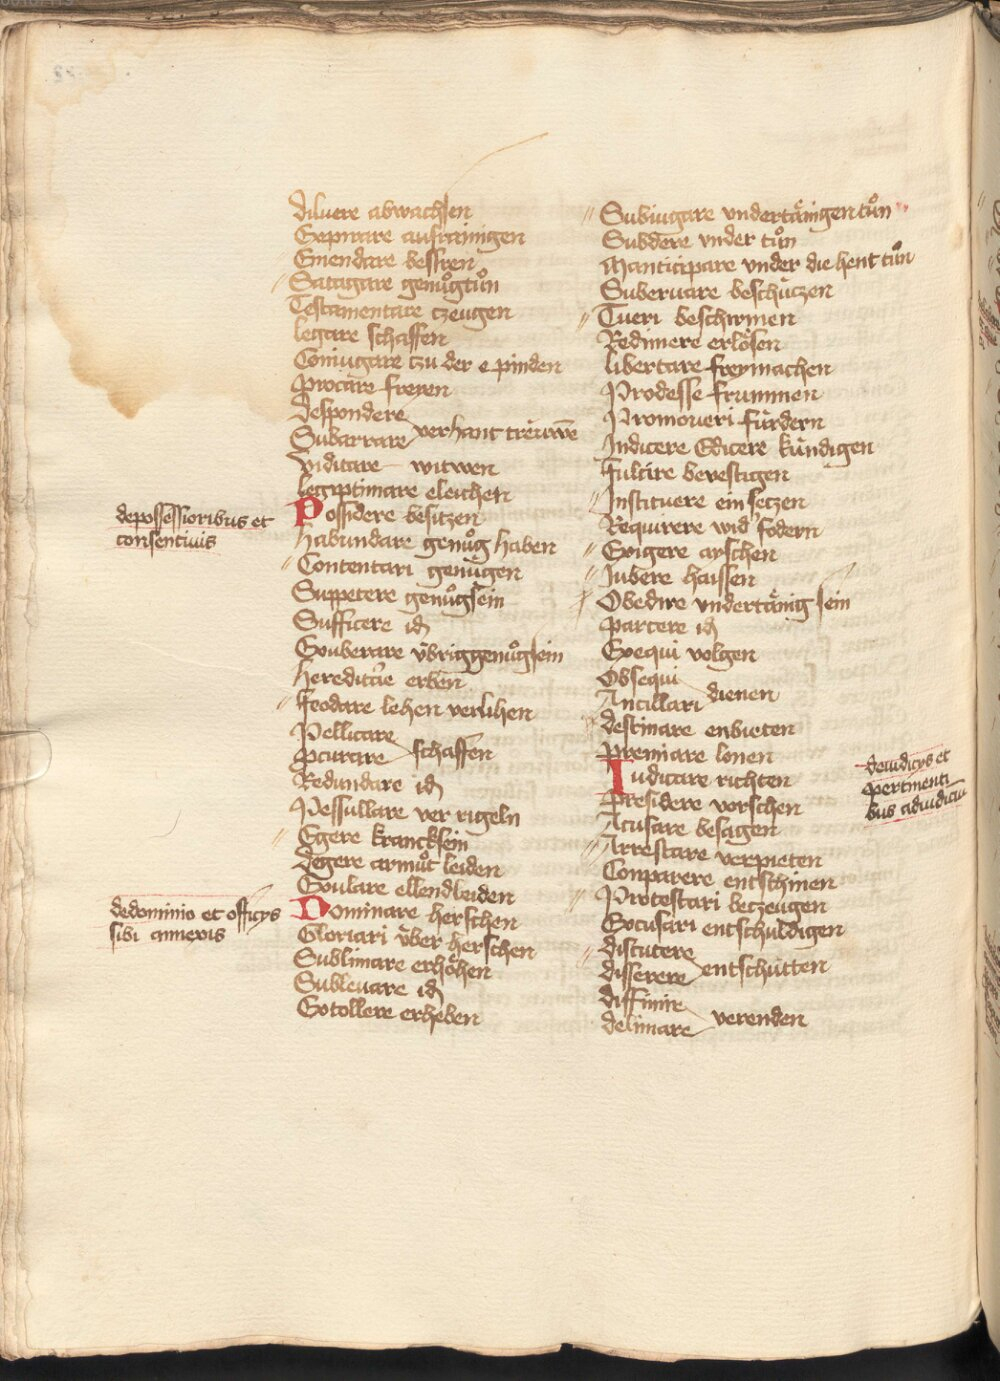 diluere abwachsen
Expirare aufrainigen
Emendare bessren
Satagare genuͦgtuͦn
Testamentare tzeugen
legare schaffen
Coniugare tzu der e pinden
procare freyen
despondere
Subarrare verhant trewen
viditare witwen
legiptimare eleichen
depossessioribus et
consentiuis
Possidere besitzen
habundare genuͦg haben
Contentari genuͤgen
Suppetere genuͦgsein
Sufficere id
Exuberare vͤbriggenuͦgsein
hereditare erben
Feodare lehen verlihen
Pellicare
pcurare schaffen
Redundare id
Pessullare ver rigeln
Egere krancksein
degere armuͦt leiden
Exulare ellendleiden
dedominio et officijs
sibi annexis
Dominare herschen
Gloriari vͤber herschen
Sublimare erhoͤhen
Subleuare id
Extollere erheben
Subiugare vndertaͤnigen tuͦn
Subdere vnder tuͦn
Manticipare vnder die hent tuͦn
Suberuare beschuͤczen
Tueri beschirmen
Redimere erloͤsen
libertare freymachen
Prodesse frummen
Promoueri fuͤrdern
Inducere Edicere kuͤndigen
fulcire bevestigen
Instituere ein seczen
Requirere wid' fodern
Exigere ayschen
Jubere haissen
Obedire vndertaͤnig sein
parcere id
Exequi volgen
Obsequi
Ancillari dienen
destinare enbieten
premiare lonen
deiudicijs et
ꝑtinenti
bus adiudiciu
Iudicare richten
presidere vorschen
Acusare besagen
Arrestare verpieten
Conparere entschinen
Protestari beczeugen
Excusari entschuldigen
discutere
disserere entschuͤtten
diffinire
delimare verenden